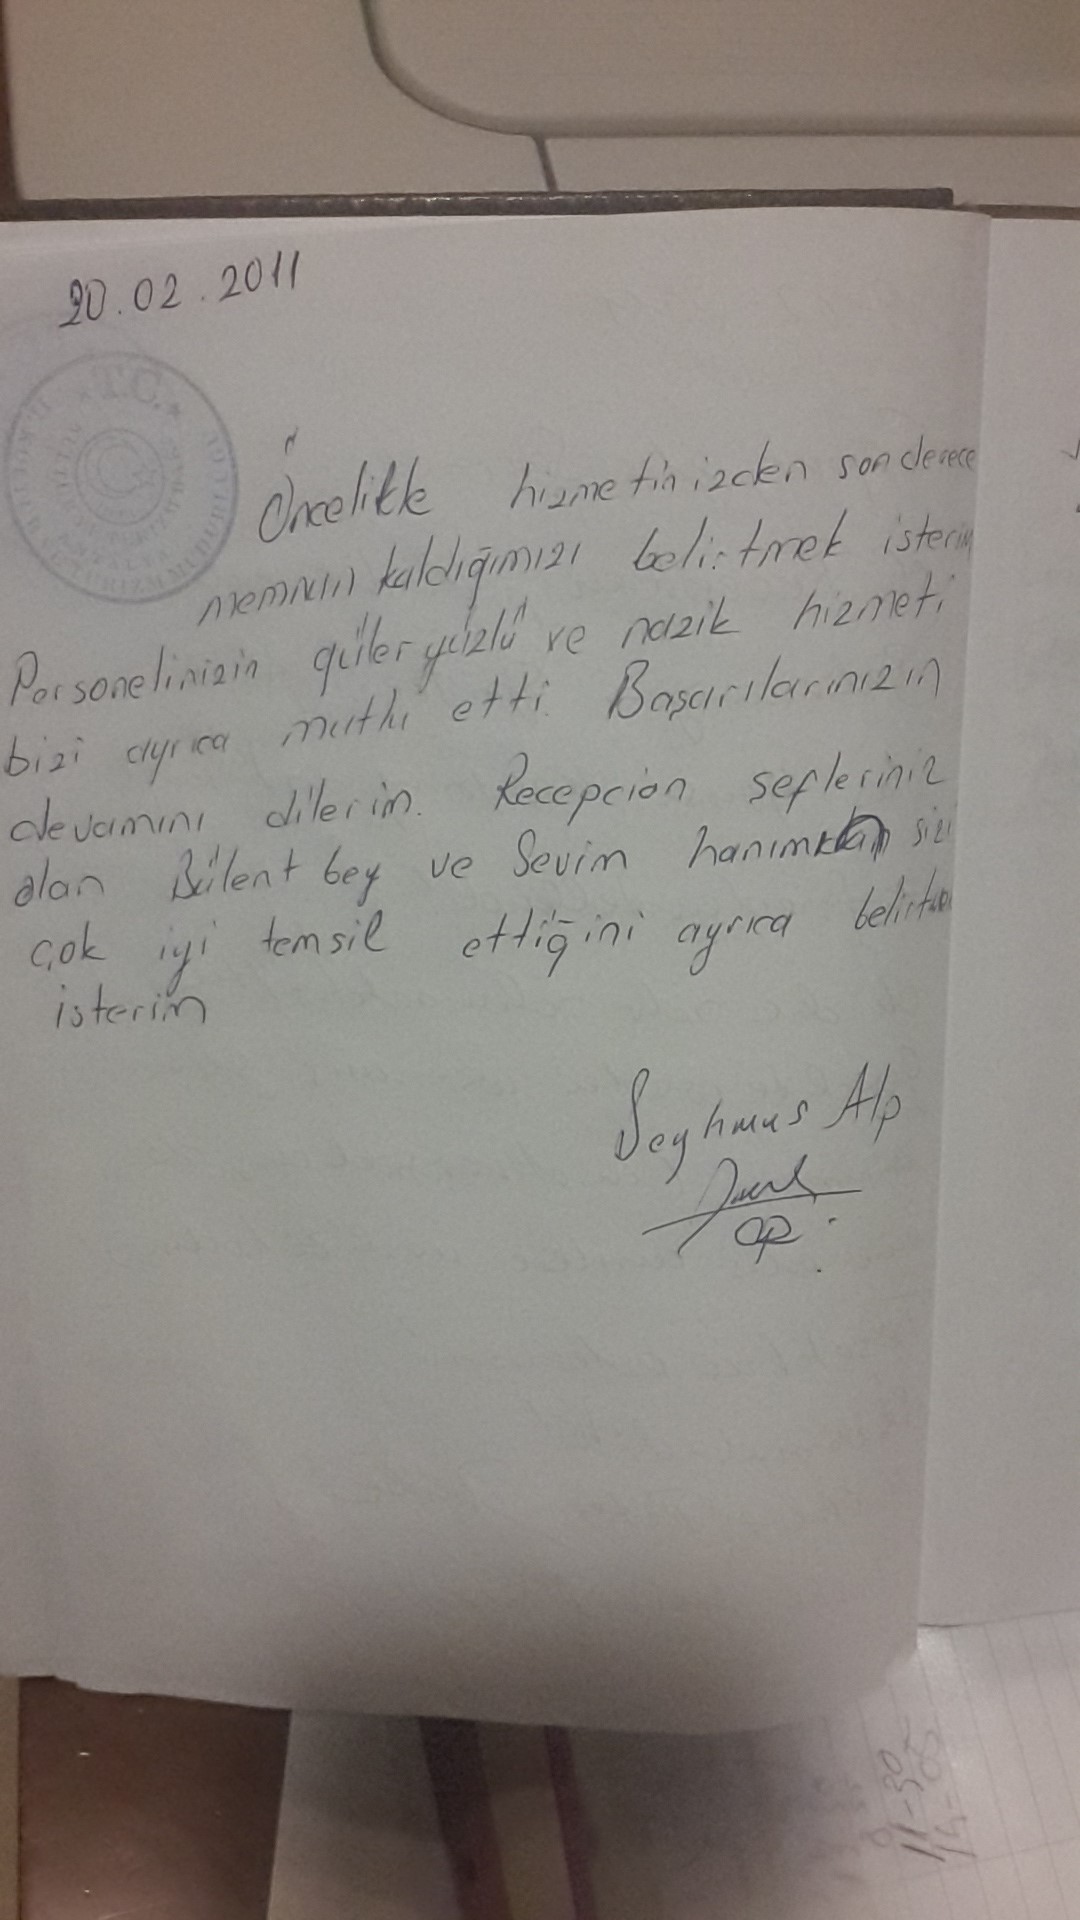 20.02.2011
T.C.
Öncelikle hizmetinizden son derece
memnun kaldığımızı belirtmek isterim
Personelinizin güler yüzlü ve nazik hizmeti
bizi ayrıca mutlu etti. Başarılarınızın
devamını dilerim. Recepcion şefleriniz
olan Bülent bey ve Sevim hanım sizi
çok iyi temsil ettiğini ayrıca
isterim
Seyhmus Alp
11-30